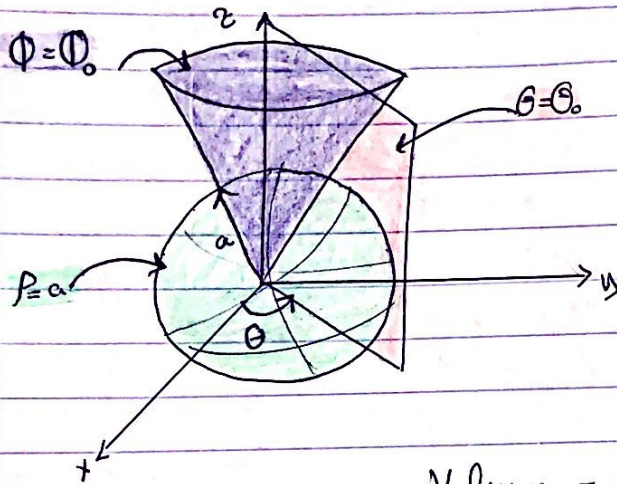 z
Φ = Φ₀
θ = θ₀
a
ρ = a
y
θ
x
Volume =